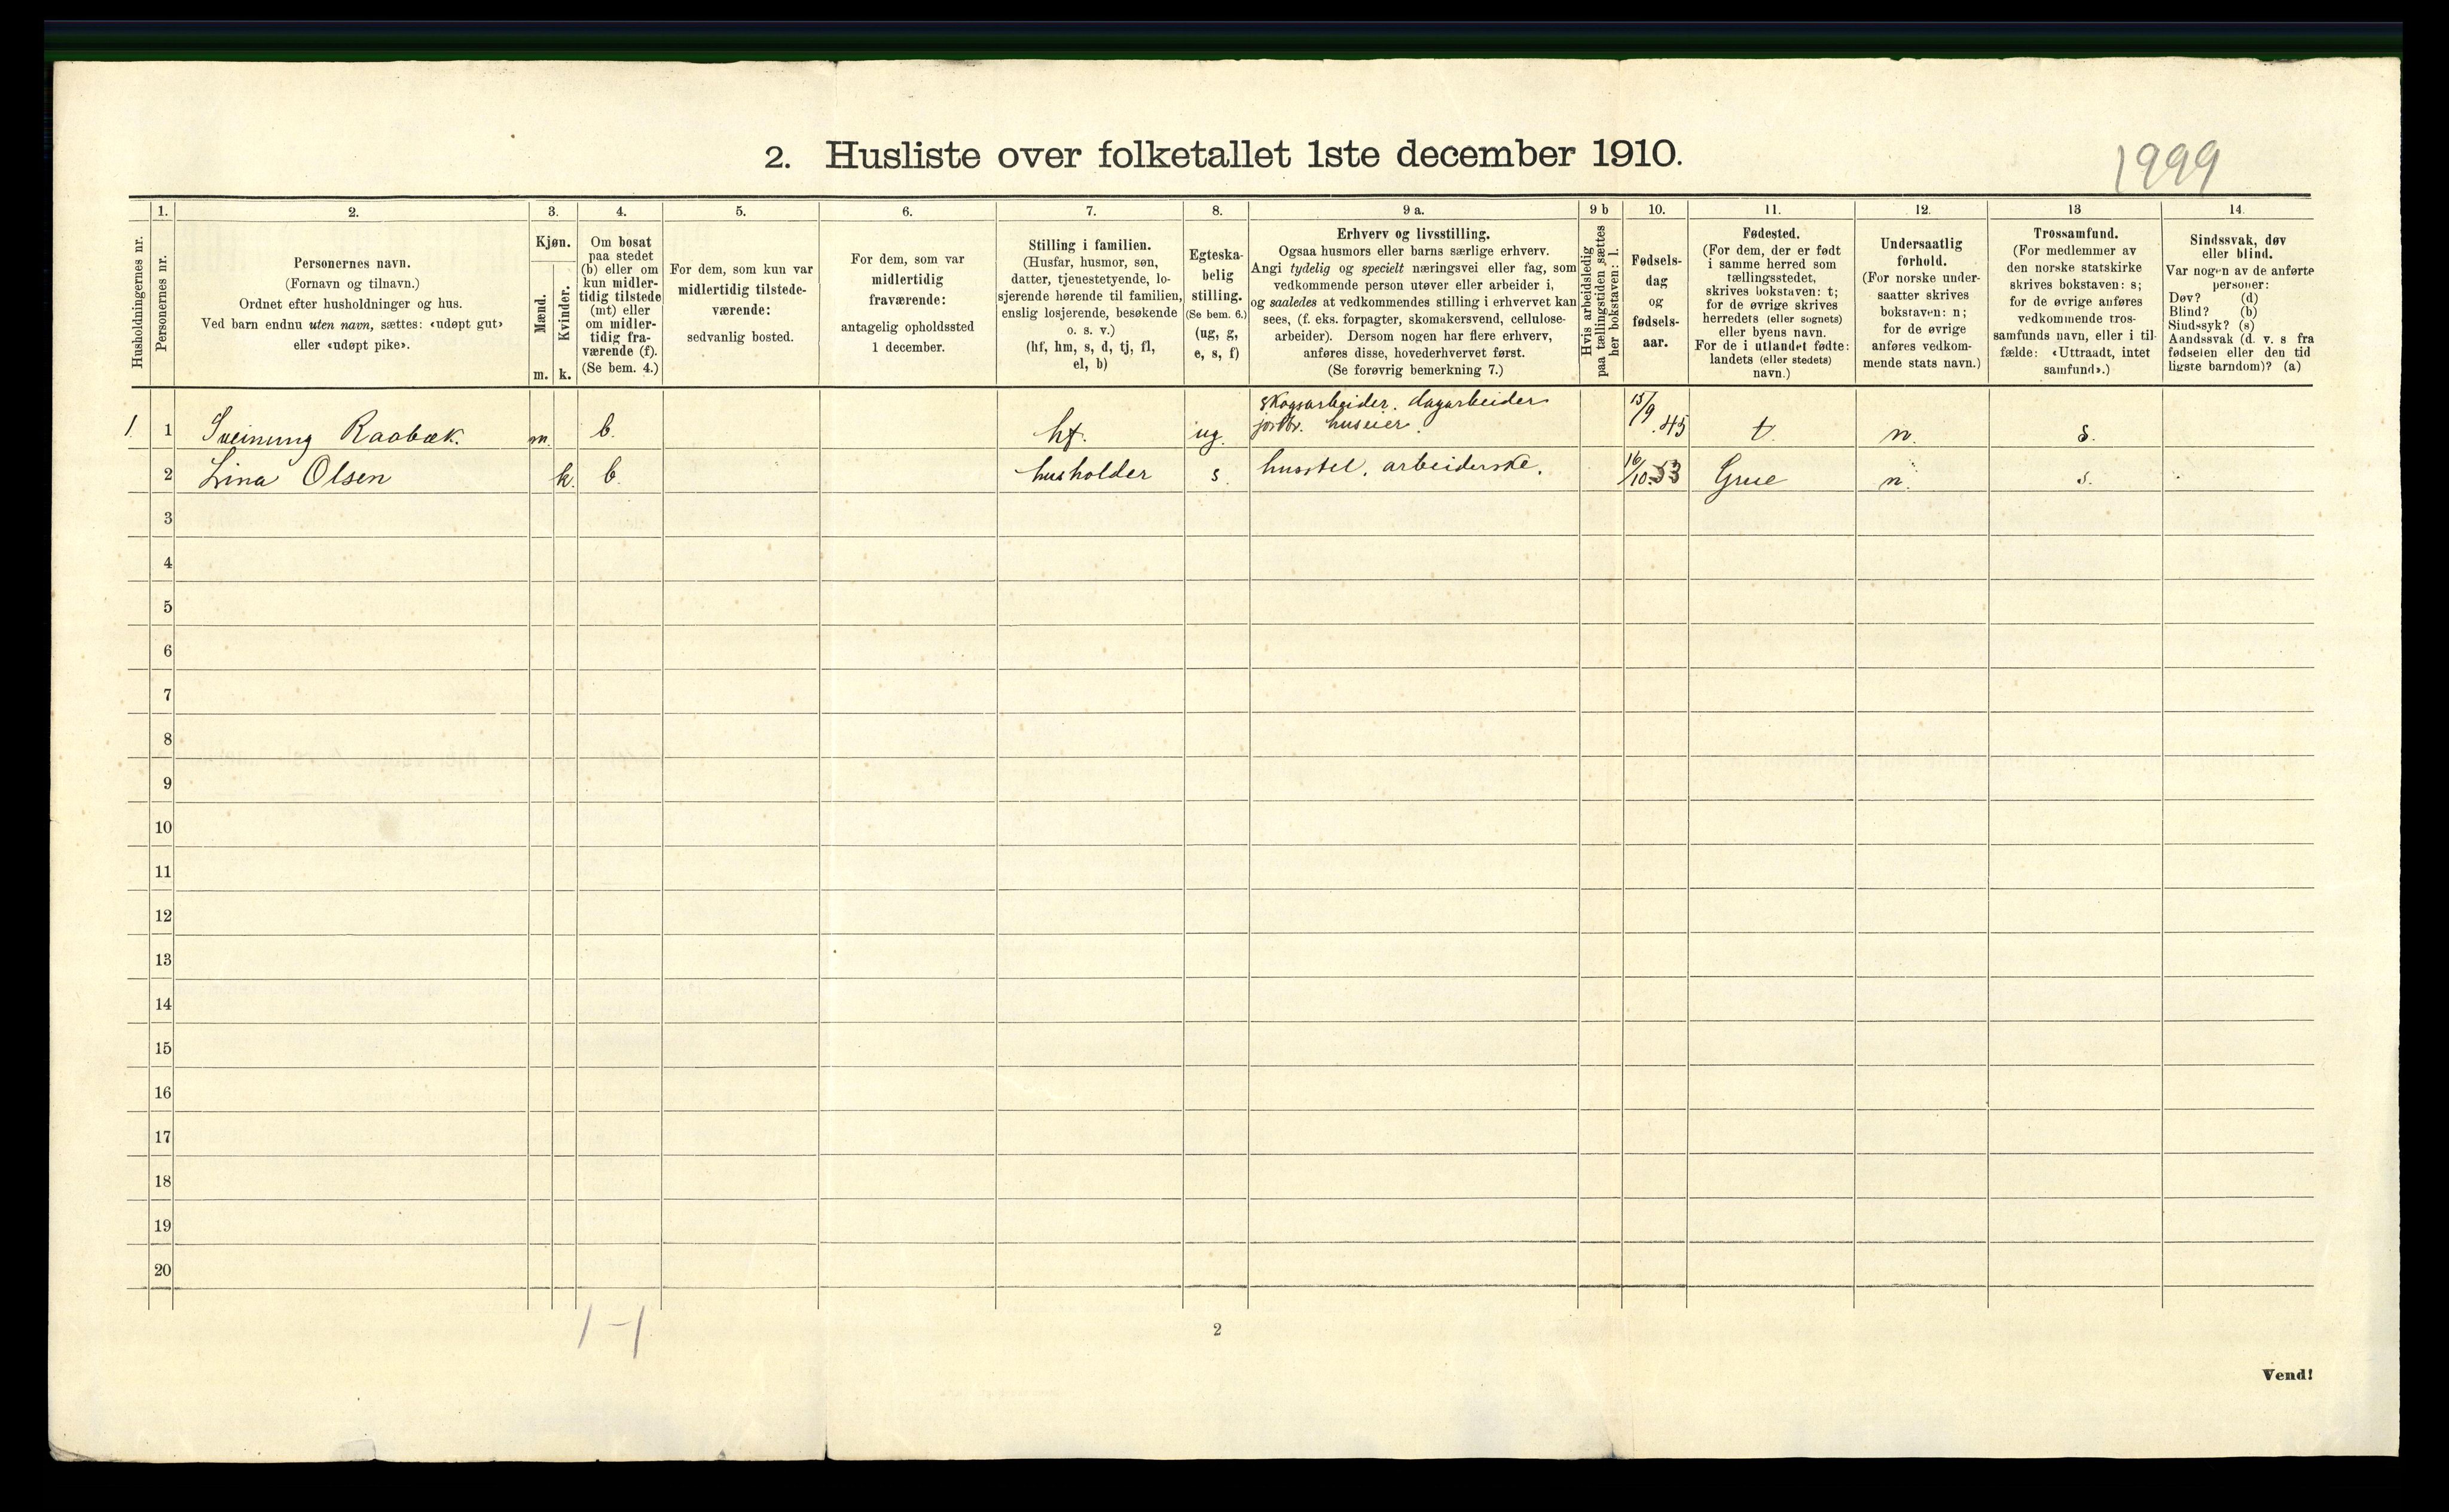 2. Husliste over folketallet 1ste december 1910.
1999
Husholdningernes nr.
1.
Personernes nr.
2.
Personernes navn.
(Fornavn og tilnavn.)
Ordnet efter husholdninger og hus.
Ved barn endnu uten navn, sættes: «udøpt gut»
eller «udøpt pike».
3.
Kjøn.
Mænd.
Kvinder.
m. k.
4.
Om bosat
paa stedet
(b) eller om
kun midler-
tidig tilstede
(mt) eller
om midler-
tidig fra-
værende (f).
(Se bem. 4.)
5.
For dem, som kun var
midlertidig tilstede-
værende:
sedvanlig bosted.
6.
For dem, som var
midlertidig
fraværende:
antagelig opholdssted
1 december.
7.
Stilling i familien.
(Husfar, husmor, søn,
datter, tjenestetyende, lo-
sjerende hørende til familien,
enslig losjerende, besøkende
o. s. v.)
(hf, hm, s, d, tj, fl,
el, b)
8.
Egteska-
belig
stilling.
(Se bem. 6.)
(ug, g,
e, s, f)
9 a.
Erhverv og livsstilling.
Ogsaa husmors eller barns særlige erhverv.
Angi tydelig og specielt næringsvei eller fag, som
vedkommende person utøver eller arbeider i,
og saaledes at vedkommendes stilling i erhvervet kan
sees, (f. eks. forpagter, skomakersvend, cellulose-
arbeider). Dersom nogen har flere erhverv,
anføres disse, hovederhvervet først.
(Se forøvrig bemerkning 7.)
9 b
Hvis arbeidsledig
paa tællingstiden sættes
her bokstaven: l.
10.
Fødsels-
dag
og
fødsels-
aar.
11.
Fødested.
(For dem, der er født
i samme herred som
tællingsstedet,
skrives bokstaven: t;
for de øvrige skrives
herredets (eller sognets)
eller byens navn.
For de i utlandet fødte:
landets (eller stedets)
navn.)
12.
Undersaatlig
forhold.
(For norske under-
saatter skrives
bokstaven: n;
for de øvrige
anføres vedkom-
mende stats navn.)
13
Trossamfund.
(For medlemmer av
den norske statskirke
skrives bokstaven: s;
for de øvrige anføres
vedkommende tros-
samfunds navn, eller i til-
fælde: «Uttraadt, intet
samfund».)
14.
Sindssvak, døv
eller blind.
Var nogen av de anførte
personer:
Døv? (d)
Blind? (b)
Sindssyk? (s)
Aandssvak (d. v. s fra
fødselen eller den tid
ligste barndom)? (a)
1. 1 Sveinung Raabæk. m. b. hf. ug. skogsarbeider. dagarbeider jordbr. huseier. 15/9.45 t. n. s.
2 Lina Olsen k. b. husholder s. husstel. arbeiderske. 16/10.53 Grue n. s.
3
4
5
6
7
8
9
10
11
12
13
14
15
16
17
18
19
20
1-1
2
Vend!